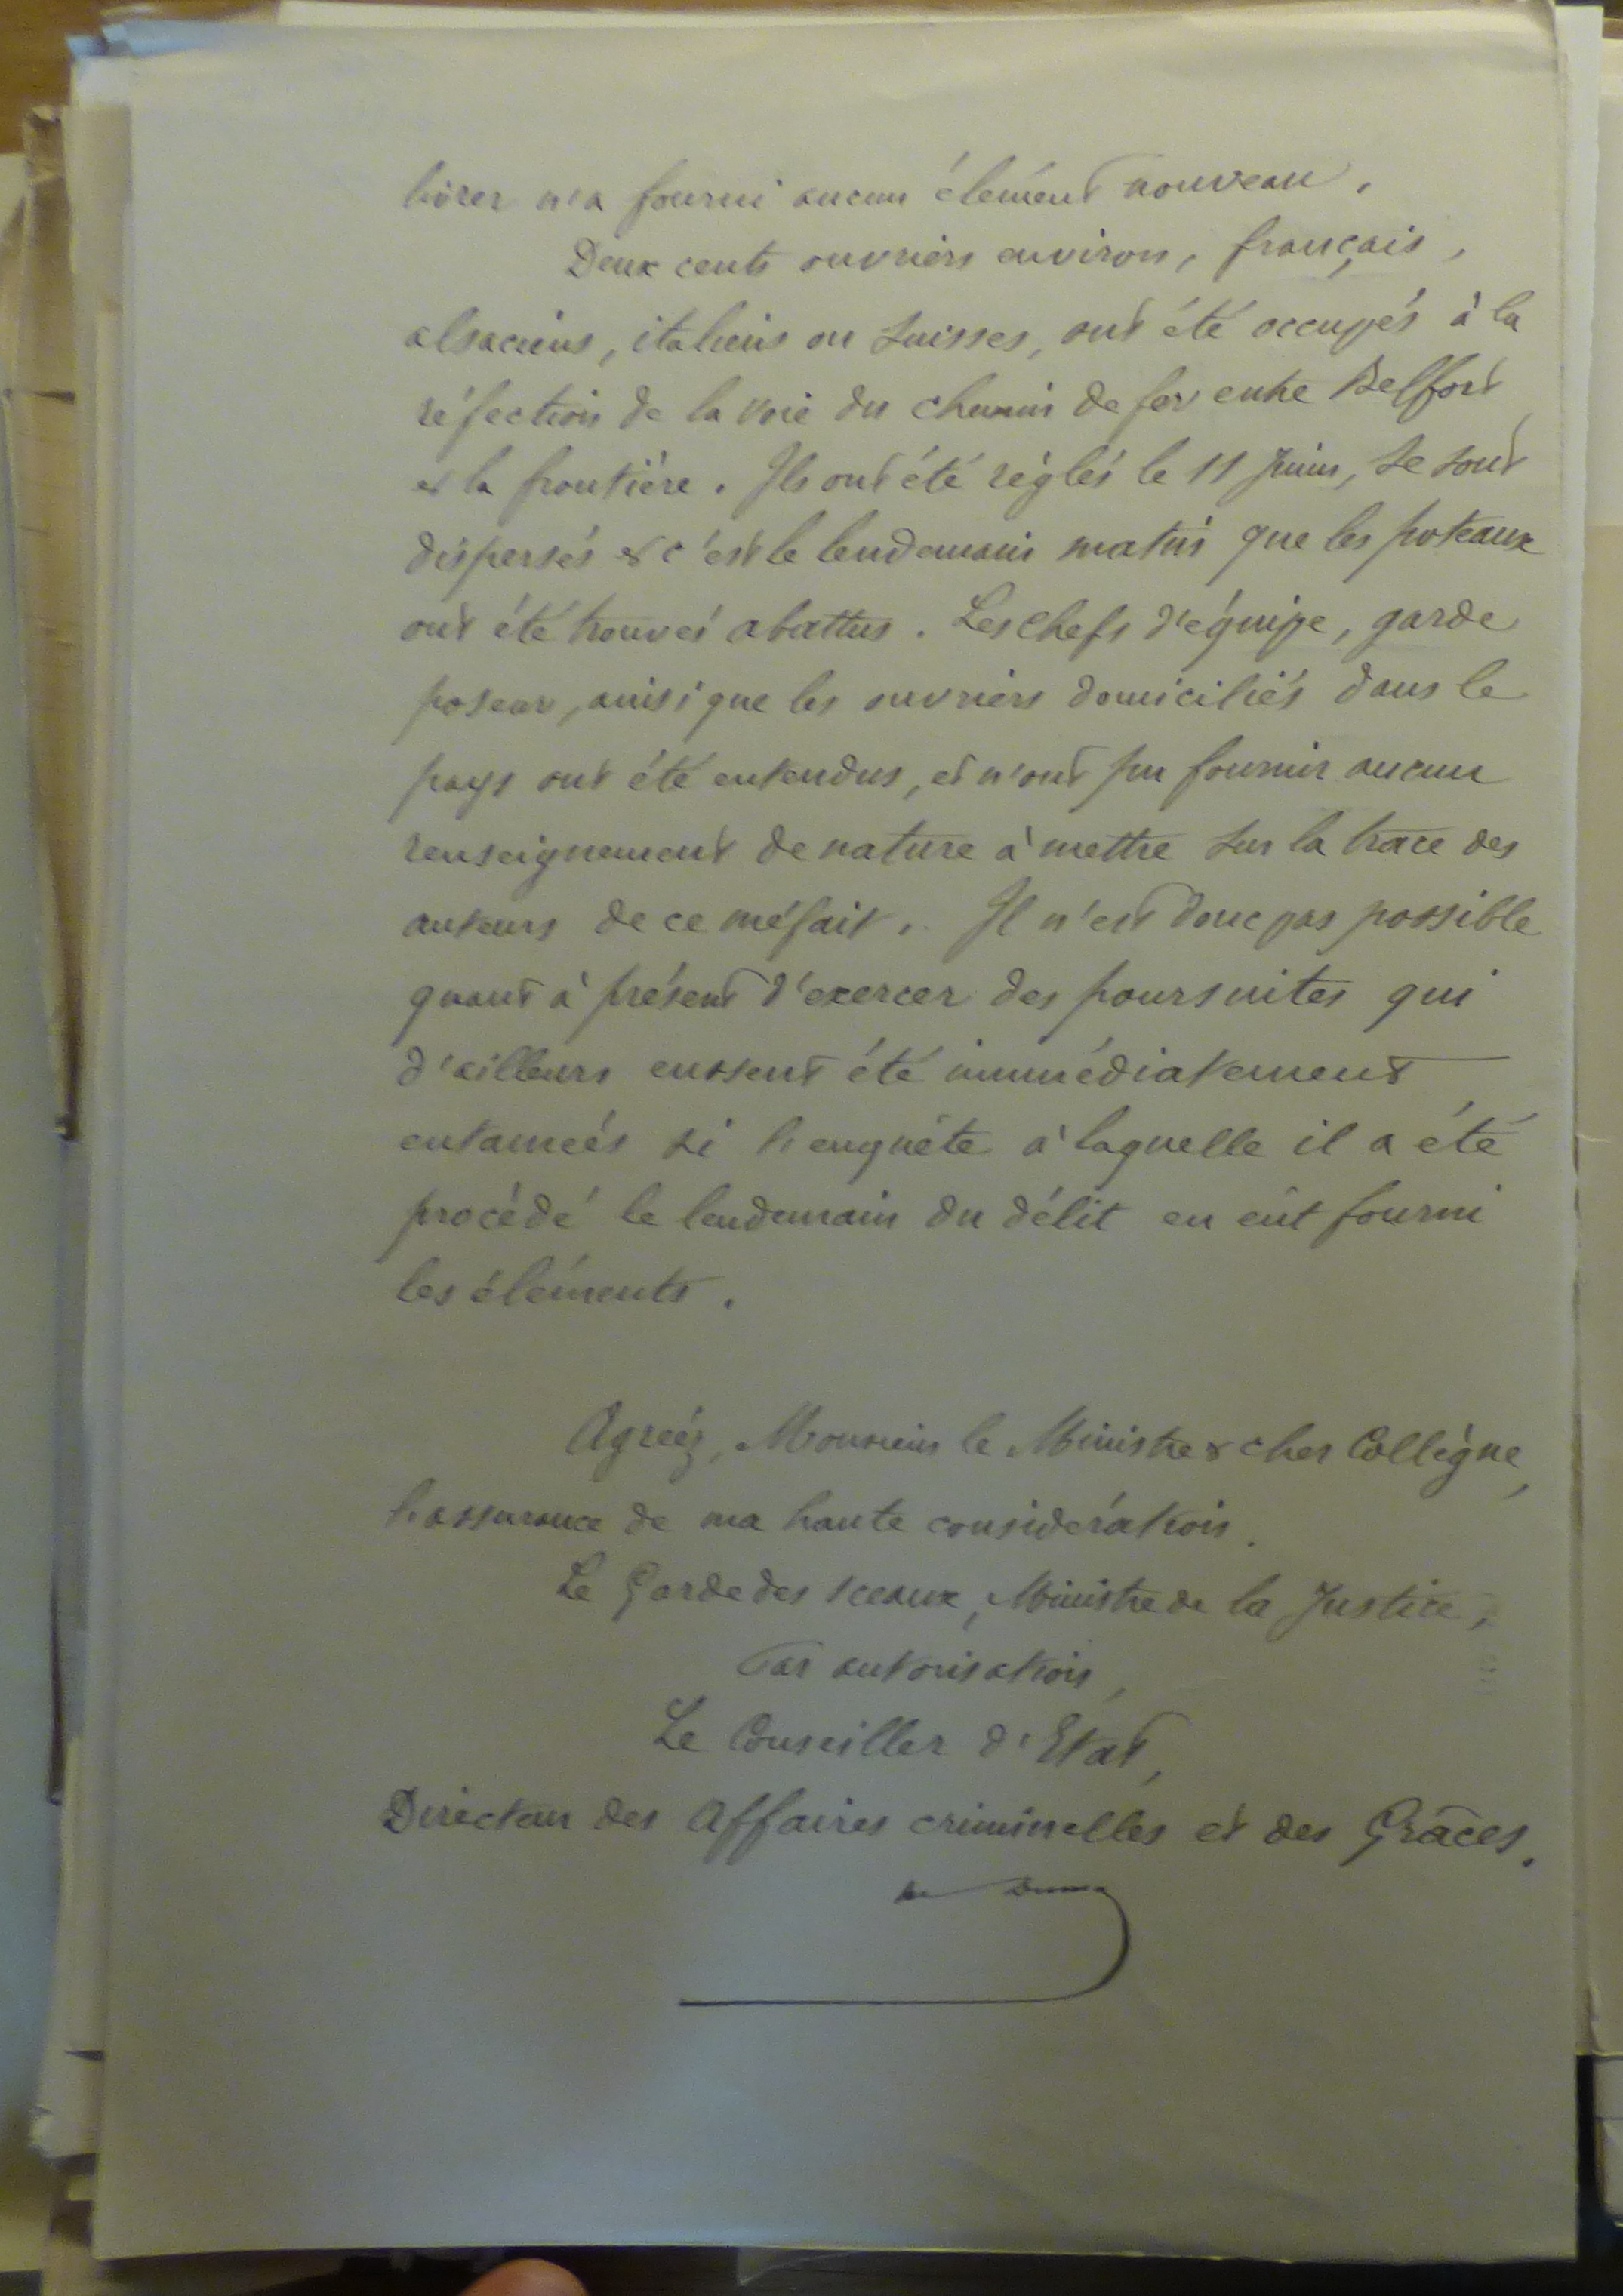 livrer n'a fourni aucun élément nouveau.
Deux cents ouvriers environ, français,
alsaciens, italiens ou suisses, ont été occupés à la
réfection de la voie du chemin de fer entre Belfort
et la frontière. Ils ont été réglés le 11 Juin, se sont
dispersés & c'est le lendemain matin que les poteaux
ont été trouvés abattus. Les chefs d'équipe, garde
poseur, ainsi que les ouvriers domiciliés dans le
pays ont été entendus, et n'ont pu fournir aucun
renseignement de nature à mettre sur la trace des
auteurs de ce méfait. Il n'est donc pas possible
quant à présent d'exercer des poursuites qui
d'ailleurs eussent été immédiatement
entamées si l'enquête à laquelle il a été
procédé le lendemain du délit en eût fourni
les éléments.
Agréez, Monsieur le Ministre & cher Collègue,
l'assurance de ma haute considération.
Le Garde des sceaux, Ministre de la Justice,
Par autorisation,
Le Conseiller d'Etat,
Directeur des Affaires criminelles et des Grâces.